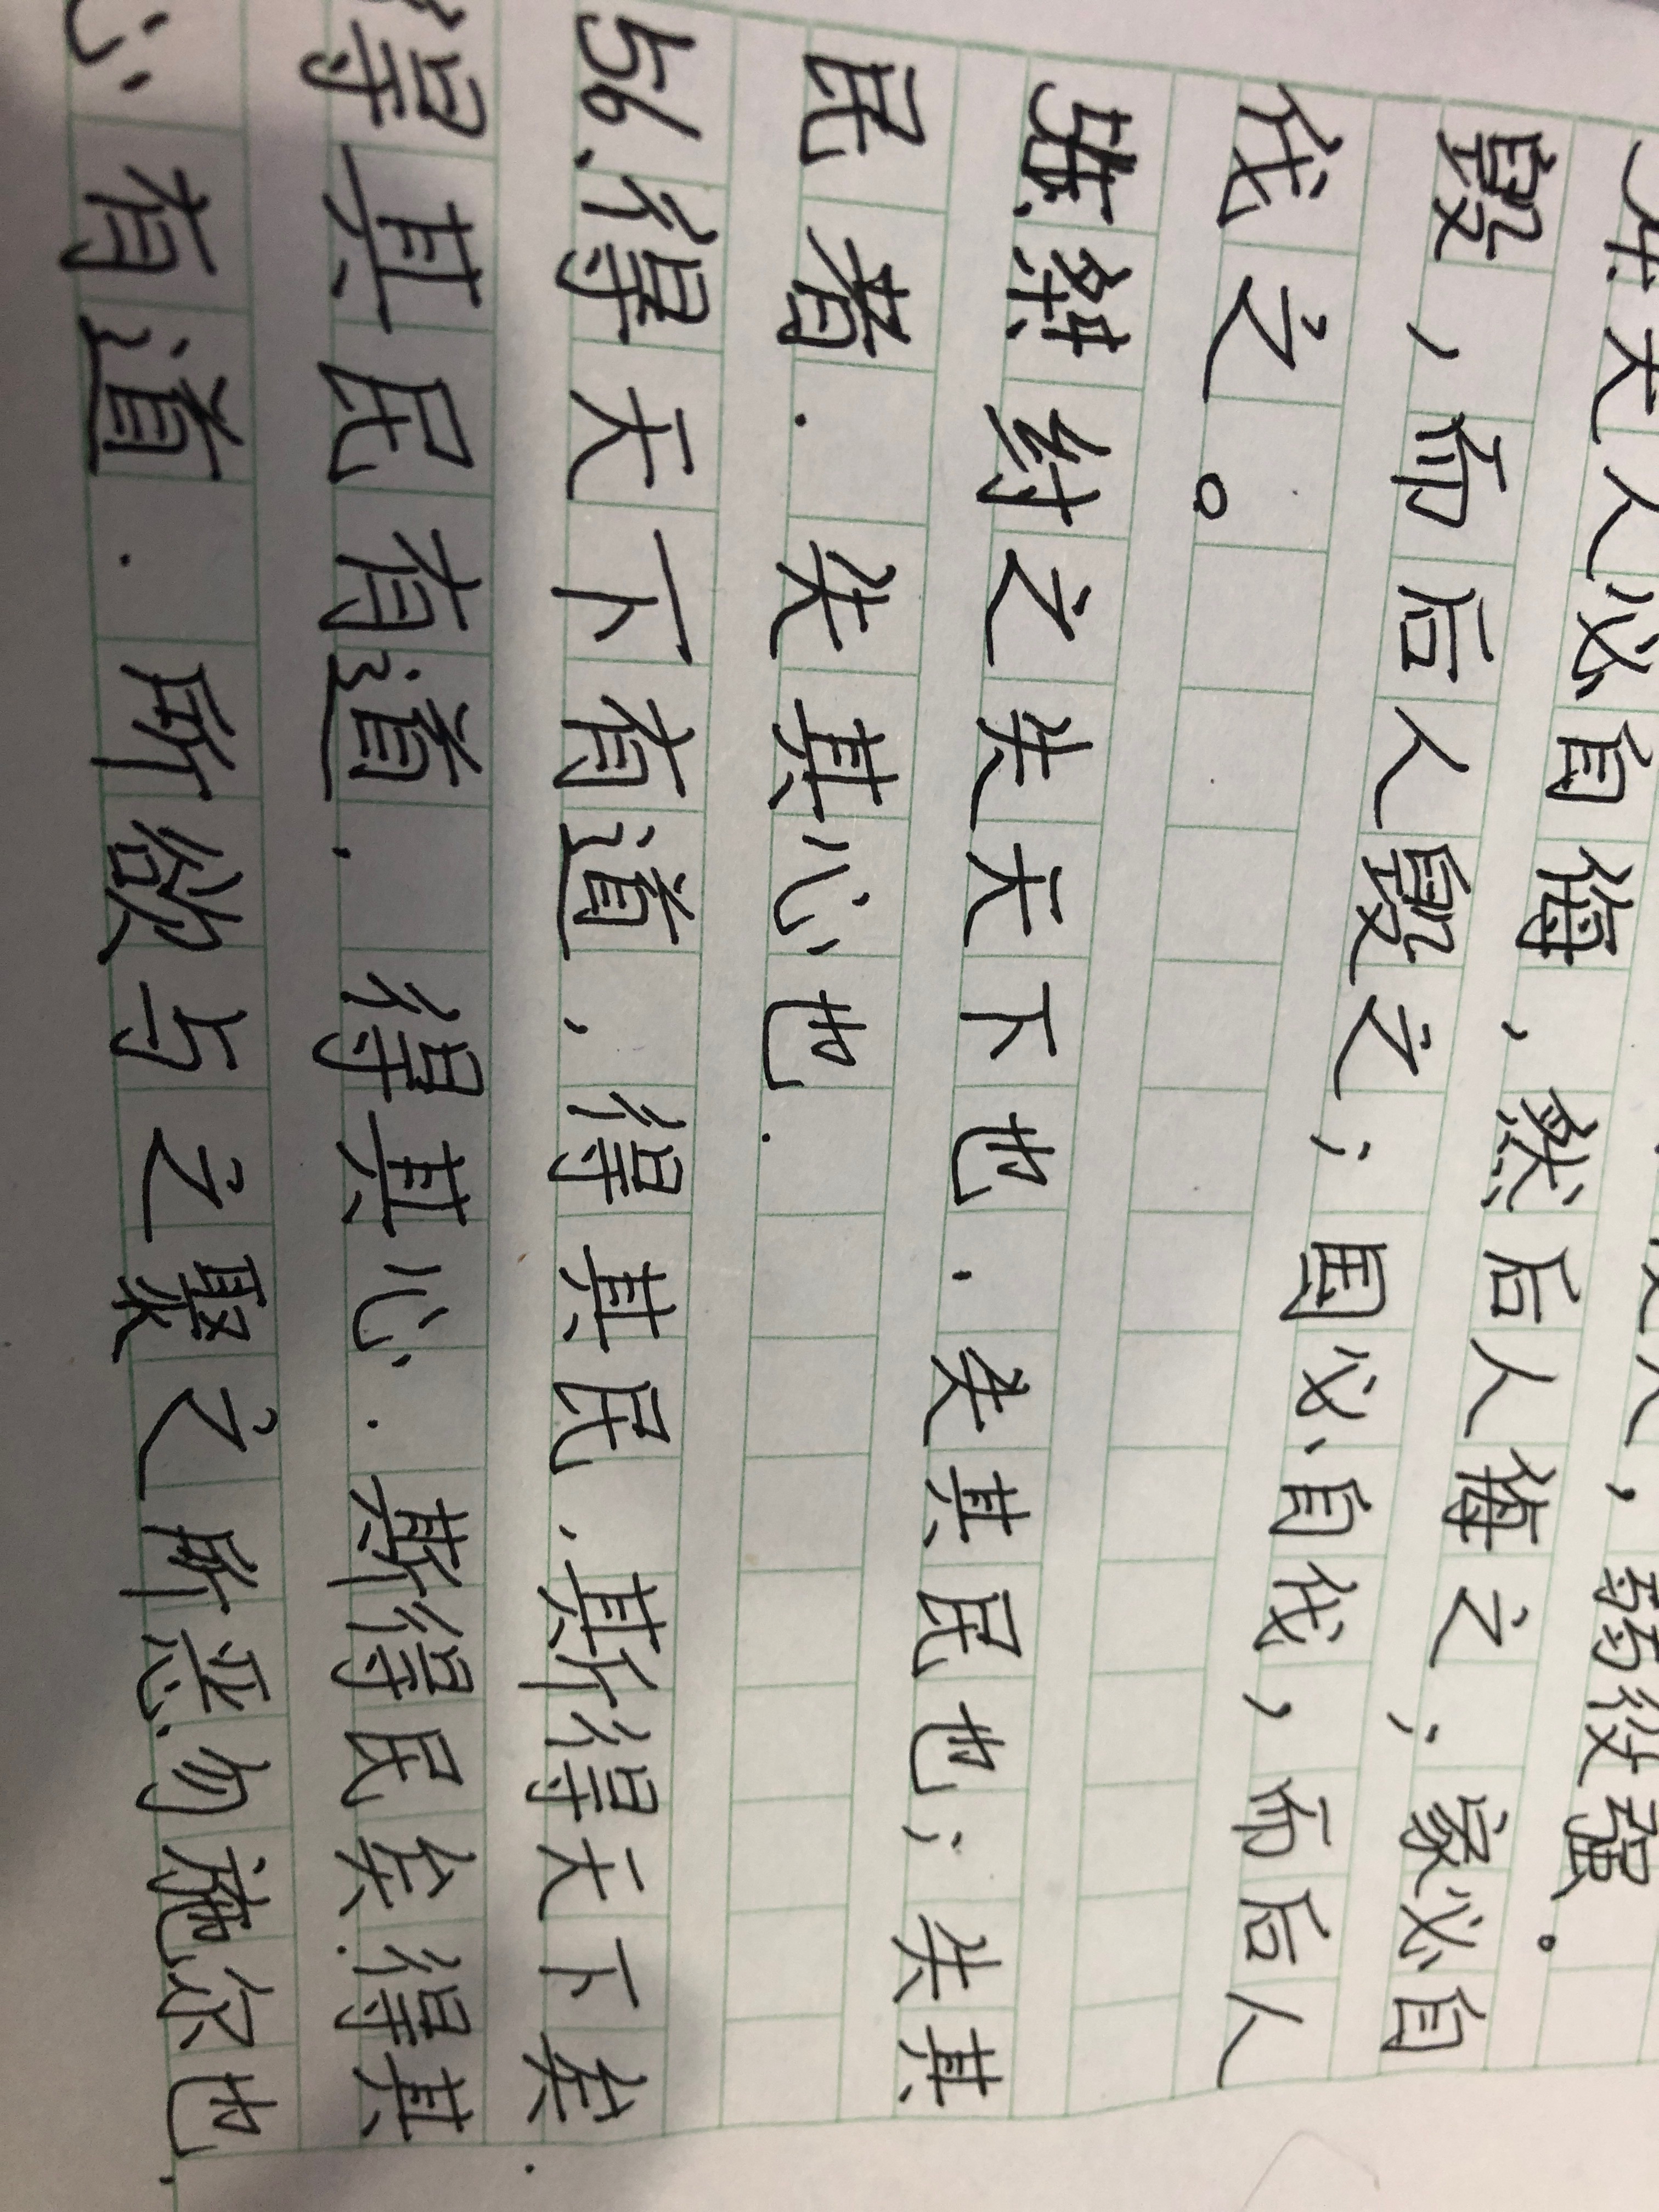 役大，弱役强。
夫人必自侮，然后人侮之；家必自
毁，而后人毁之；国必自伐，而后人
伐之。
55.桀纣之失天下也.失其民也；失其
民者.失其心也.
56.得天下有道，得其民.斯得天下矣.
得其民有道.得其心.斯得民矣.得其
心有道.所欲与之聚之所恶勿施尔也.